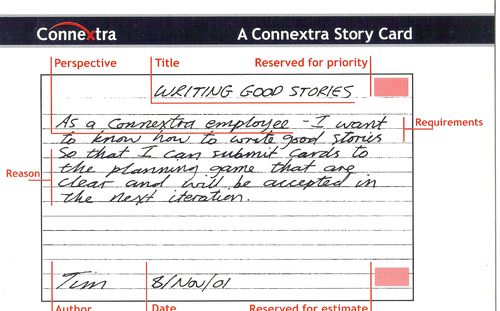 Connextra
A Connextra Story Card
Perspective
Title
Reserved for priority
WRITING GOOD STORIES
As a Connextra employee - I want
to know how to write good stories
So that I can submit cards to
the planning game that are
clear and will be accepted in
the next iteration.
Requirements
Reason
Tim
8/Nov/01
Author
Date
Reserved for estimate